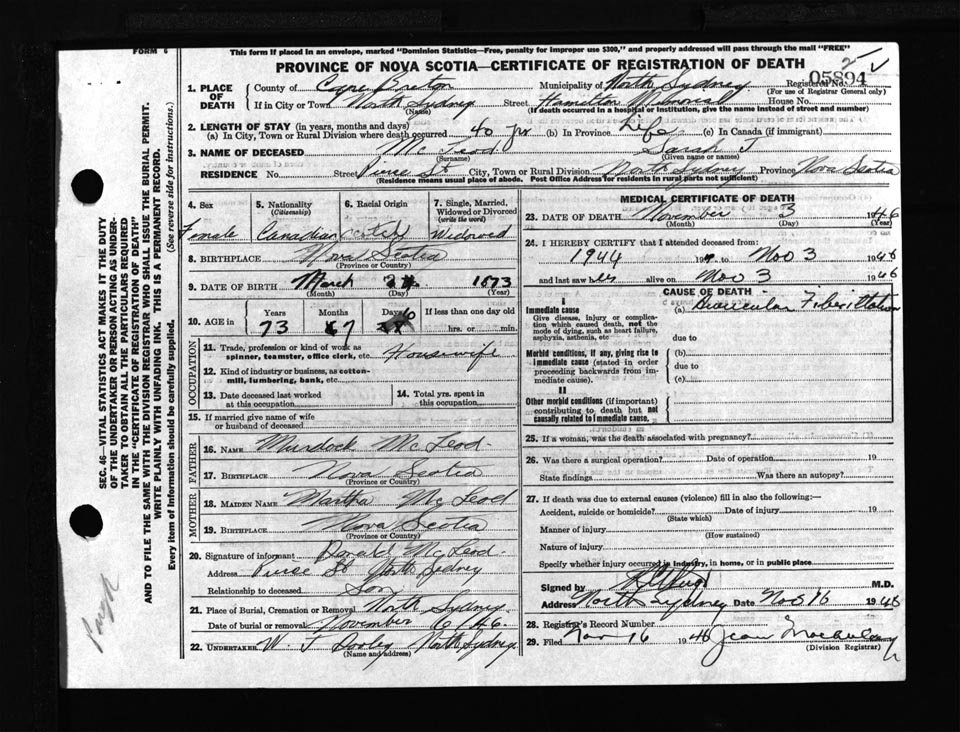 FORM 6
This form if placed in an envelope, marked "Dominion Statistics—Free, penalty for improper use $300," and properly addressed will pass through the mail "FREE"
PROVINCE OF NOVA SCOTIA—CERTIFICATE OF REGISTRATION OF DEATH
05894
1. PLACE OF DEATH County of Cape Breton Municipality of North Sydney Registered No.
(For use of Registrar General only)
If in City or Town North Sydney Street Hamilton Memorial House No.
(Name) (If death occurred in a hospital or institution, give the name instead of street and number)
2. LENGTH OF STAY (in years, months and days)
(a) In City, Town or Rural Division where death occurred 40 yrs (b) In Province Life (c) In Canada (if immigrant)
3. NAME OF DECEASED McLeod Sarah J
(Surname) (Given name or names)
RESIDENCE No. Street City, Town or Rural Division North Sydney Province Nova Scotia
(Residence means usual place of abode. Post Office Address for residents in rural parts not sufficient)
4. Sex Female
5. Nationality (Citizenship) Canadian
6. Racial Origin
7. Single, Married, Widowed or Divorced (write the word) Widowed
8. BIRTHPLACE Nova Scotia
(Province or Country)
9. DATE OF BIRTH March 1873
(Month) (Day) (Year)
10. AGE in Years Months Days If less than one day old
73 7 hrs. or min.
OCCUPATION
11. Trade, profession or kind of work as spinner, teamster, office clerk, etc. Housewife
12. Kind of industry or business, as cotton-mill, lumbering, bank, etc.
13. Date deceased last worked at this occupation
14. Total yrs. spent in this occupation
15. If married give name of wife or husband of deceased
FATHER
16. NAME Murdock McLeod
17. BIRTHPLACE Nova Scotia
(Province or Country)
MOTHER
18. MAIDEN NAME Martha McLeod
19. BIRTHPLACE Nova Scotia
(Province or Country)
20. Signature of informant Donald McLeod
Address St North Sydney
Relationship to deceased Son
21. Place of Burial, Cremation or Removal North Sydney
Date of burial or removal November 6/46
22. UNDERTAKER W. J. Dooley North Sydney
(Name and address)
MEDICAL CERTIFICATE OF DEATH
23. DATE OF DEATH November 3 1946
(Month) (Day) (Year)
24. I HEREBY CERTIFY that I attended deceased from:
1944 19 Nov 3 1946
and last saw her alive on Nov 3 1946
CAUSE OF DEATH
I
Immediate cause
Give disease, injury or complication which caused death, not the mode of dying, such as heart failure, asphyxia, asthenia, etc
(a) Auricular Fibrillation
due to
Morbid conditions, if any, giving rise to immediate cause (stated in order proceeding backwards from immediate cause).
(b)
due to
(c)
II
Other morbid conditions (if important) contributing to death but not causally related to immediate cause.
25. If a woman, was the death associated with pregnancy?
26. Was there a surgical operation? Date of operation 19
State findings Was there an autopsy?
27. If death was due to external causes (violence) fill in also the following:—
Accident, suicide or homicide? Date of injury 19
(State which)
Manner of injury
(How sustained)
Nature of injury
Specify whether injury occurred in industry, in home, or in public place
Signed by M.D.
Address North Sydney Date Nov 16 1946
28. Registrar's Record Number
29. Filed Nov 16 1946 Jean
(Division Registrar)
SEC. 46—VITAL STATISTICS ACT MAKES IT THE DUTY
OF THE UNDERTAKER OR PERSON ACTING AS UNDERTAKER
TO OBTAIN ALL THE PARTICULARS REQUIRED
IN THE "CERTIFICATE OF REGISTRATION OF DEATH"
AND TO FILE THE SAME WITH THE DIVISION REGISTRAR WHO SHALL ISSUE THE BURIAL PERMIT.
WRITE PLAINLY WITH UNFADING INK. THIS IS A PERMANENT RECORD.
Every item of Information should be carefully supplied. (See reverse side for instructions.)